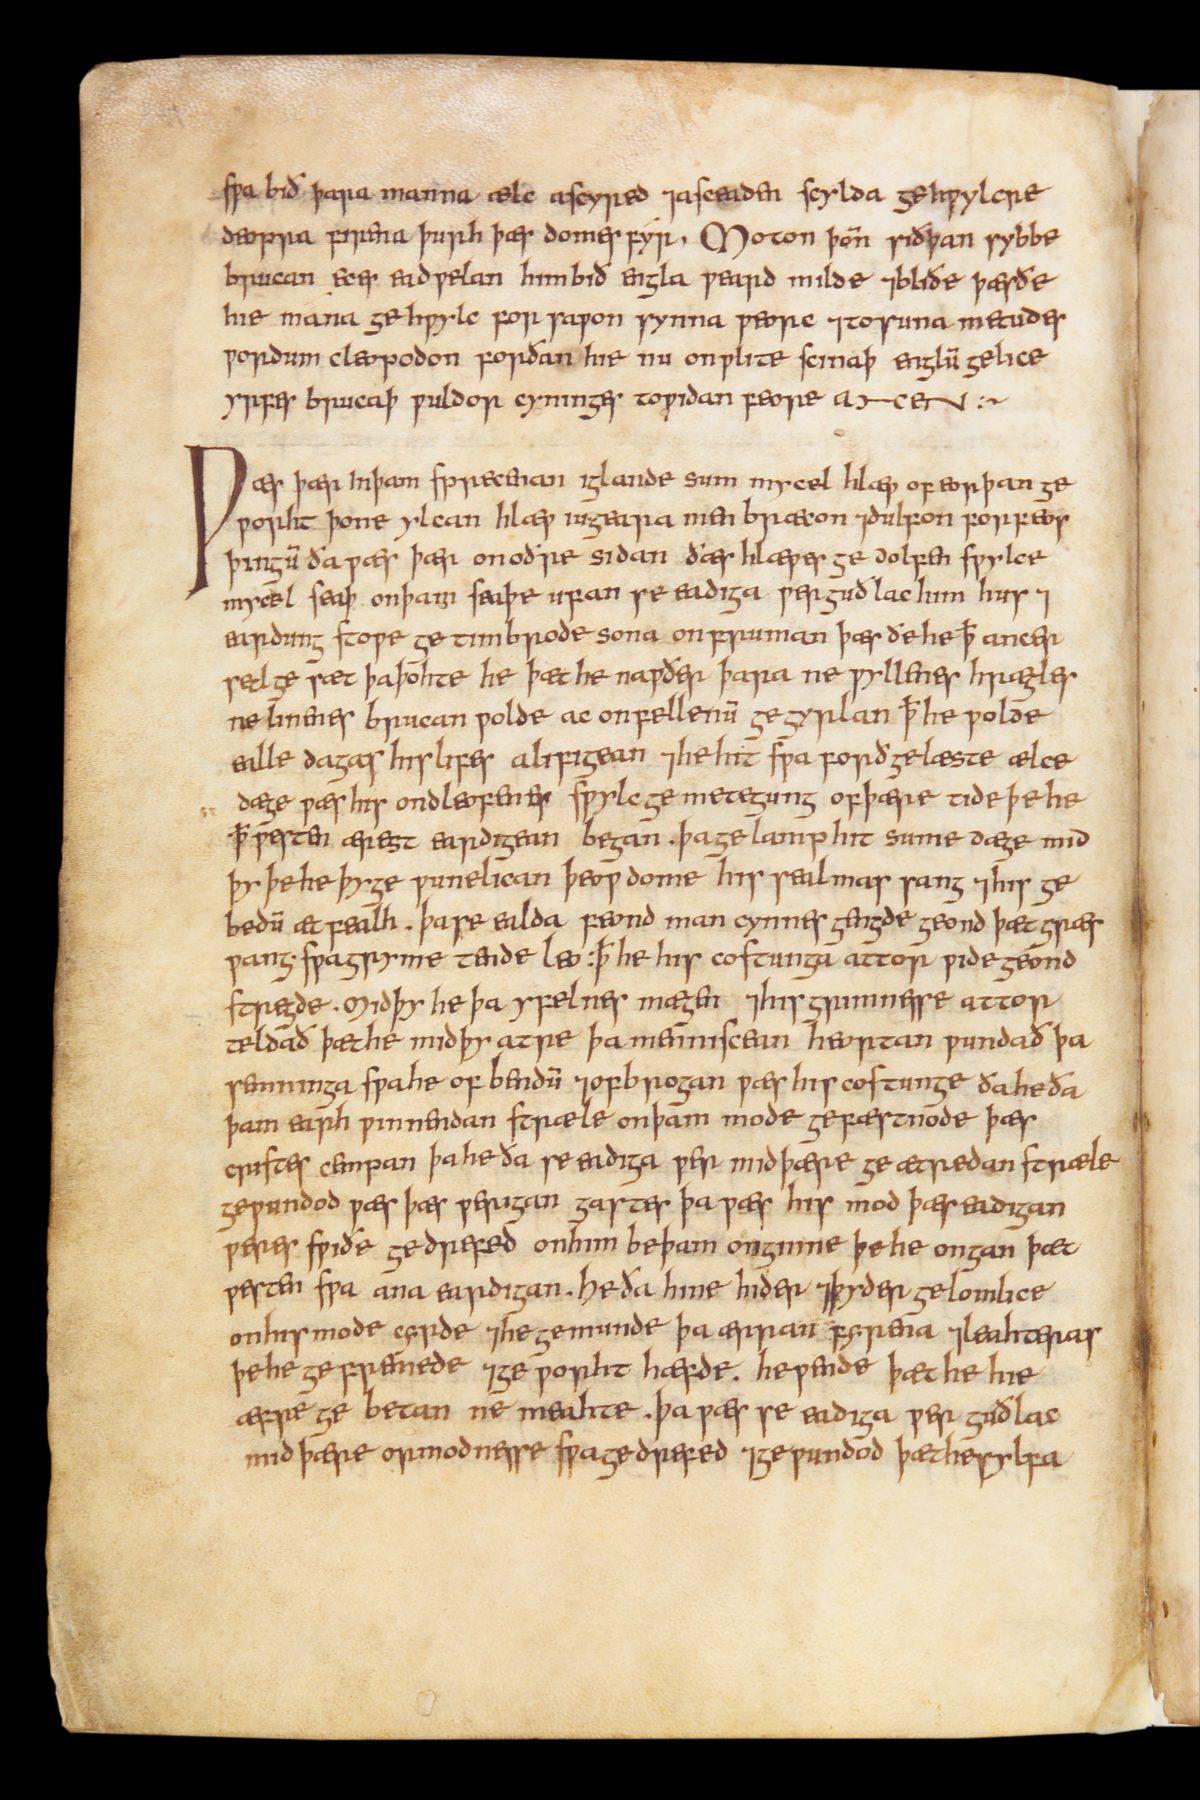 sƿa bið þara manna ælc ascyred ⁊asceaden scylda gehƿylcre
deopra firena þurh þæs domes fýr. Moton þoñ siðþan sybbe
brucan eces eadƿelan him bið engla ƿeard milde ⁊bliðe þæsðe
hie mana gehƿylc for saƿon synna ƿeorc ⁊tosuna metudes
ƿordum cleopodon forðan hie nu onƿlite scinaþ englū gelice
yrfes brucaþ ƿuldor cyninges toƿidan feore AMEN :~
Ƿæs þær inþam sprecenan iglande sum mycel hlæƿ ofeorþan ge
ƿorht þone ylcan hlæƿ iugeara men bræcon ⁊dulfon forfeos
þingū ða ƿæs þær onoðre sidan ðæs hlæƿes ge dolfen sƿylce
mycel seaþ onþam seaþe ufan se eadiga ƿer guðlac him hus ⁊
eardung stoƿe ge timbrode sona onfruman þæs ðe he þ̄ ancer
setl ge sæt þaþohte he þæt he naƿðer þara ne ƿyllenes hrægles
ne linenes brucan ƿolde ac onfellenū gegyrlan þ̄ he ƿolde
ealle dagas his lifes alifigean ⁊he hit sƿa forð gelæste ælce
dæge ƿæs his ondleofenes sƿylc ge metegung ofþære tide þe he
þ̄ ƿesten ærest eardigean began. þa gelamp hit sume dæge mid
þy þe he þy ge ƿunelican þeoƿdome his sealmas sang ⁊his ge
bedū ætfealh. þa se ealda feond man cynnes gengde geond þæt græs
ƿang. sƿa grymetende leo : þ̄ he his costunga attor ƿide geond
stregde. Midþy he þa yfelnes mægen ⁊his grimnesse attor
teldað þæthe midþy atre þa menniscean heortan ƿundað þa
semninga sƿahe of bendū ⁊ofbrogan ƿæs his costunge ðaheða
þam earh ƿinnendan stræle onþam mode gefæstnode þæs
cristes cempan þaheða se eadiga ƿer midþære ge ætredan stræle
geƿundod ƿæs þæs ƿerigan gastes þa ƿæs his mod þæs eadigan
ƿeres sƿiðe gedrefed onhim beþam onginne þe he ongan þæt
ƿesten sƿa ana eardigan. he ða hine hider ⁊þyder gelomlice
onhis mode cerde ⁊he gemunde þa ærran fyrena ⁊leahteras
þe he gefremede ⁊ge ƿorht hæfde. he ƿende þæt he hie
æfre ge betan ne meahte. þa ƿæs se eadiga ƿer guðlac
mid þære ormodnesse sƿa gedrefed ⁊geƿundod þæthesylfa